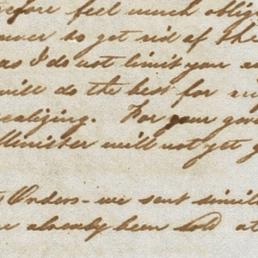 fore feel much oblig
to get rid of the
as I do not limit your
will do the best for
ealizing. For your goo
Minister will not get g
Orders - we sent simil
e already been sold at